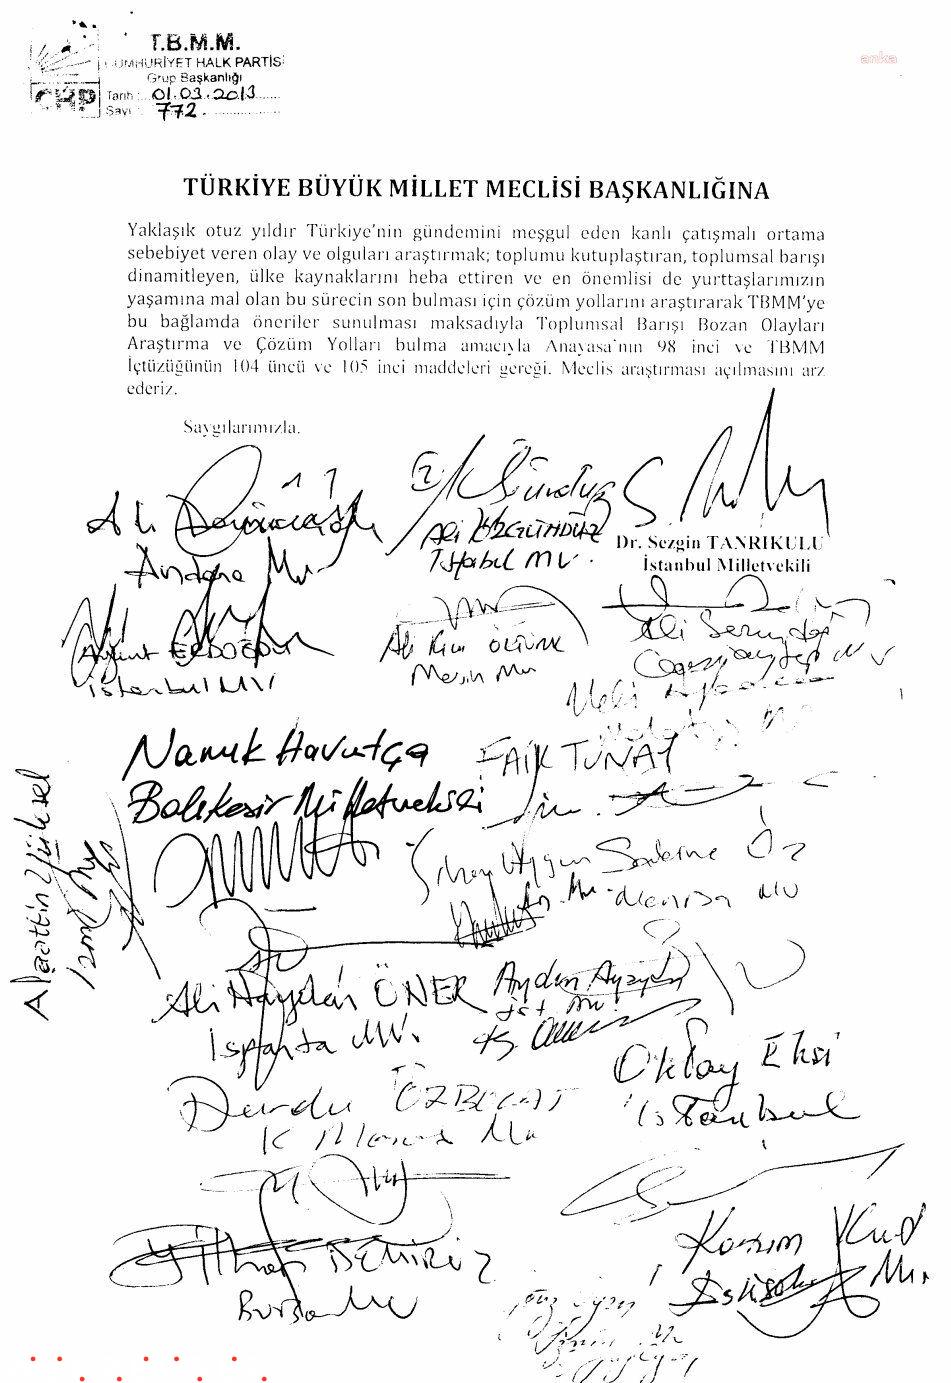 T.B.M.M.
CUMHURİYET HALK PARTİSİ
Grup Başkanlığı
CHP
Tarih : 01.03.2013
Sayı : 772.
anka
TÜRKİYE BÜYÜK MİLLET MECLİSİ BAŞKANLIĞINA
Yaklaşık otuz yıldır Türkiye'nin gündemini meşgul eden kanlı çatışmalı ortama
sebebiyet veren olay ve olguları araştırmak; toplumu kutuplaştıran, toplumsal barışı
dinamitleyen, ülke kaynaklarını heba ettiren ve en önemlisi de yurttaşlarımızın
yaşamına mal olan bu sürecin son bulması için çözüm yollarını araştırarak TBMM'ye
bu bağlamda öneriler sunulması maksadıyla Toplumsal Barışı Bozan Olayları
Araştırma ve Çözüm Yolları bulma amacıyla Anayasa'nın 98 inci ve TBMM
İçtüzüğünün 104 üncü ve 105 inci maddeleri gereği. Meclis araştırması açılmasını arz
ederiz.
Saygılarımızla.
Ali
Ali ÖZGÜNDÜZ
Dr. Sezgin TANRIKULU
İstanbul Milletvekili
Aykut ERDOĞDU
İstanbul MV
Ali Rıza ÖZTÜRK
Mersin Mv
Ali Serindağ
Gaziantep MV
Namık Havutça
FAİK TUNAY
Balıkesir Milletvekili
Alaattin Yüksel
İzmir Mv
Sakine Öz
Manisa MV
Ali Haydar ÖNER
Isparta MV.
Aydın Ayaydın
İst. Mv.
Oktay Ekşi
İstanbul
Durdu ÖZBOLAT
K Maraş Mv
İlhan DEMİRÖZ
Bursa MV
Kazım Kurt
Eskişehir Mv.